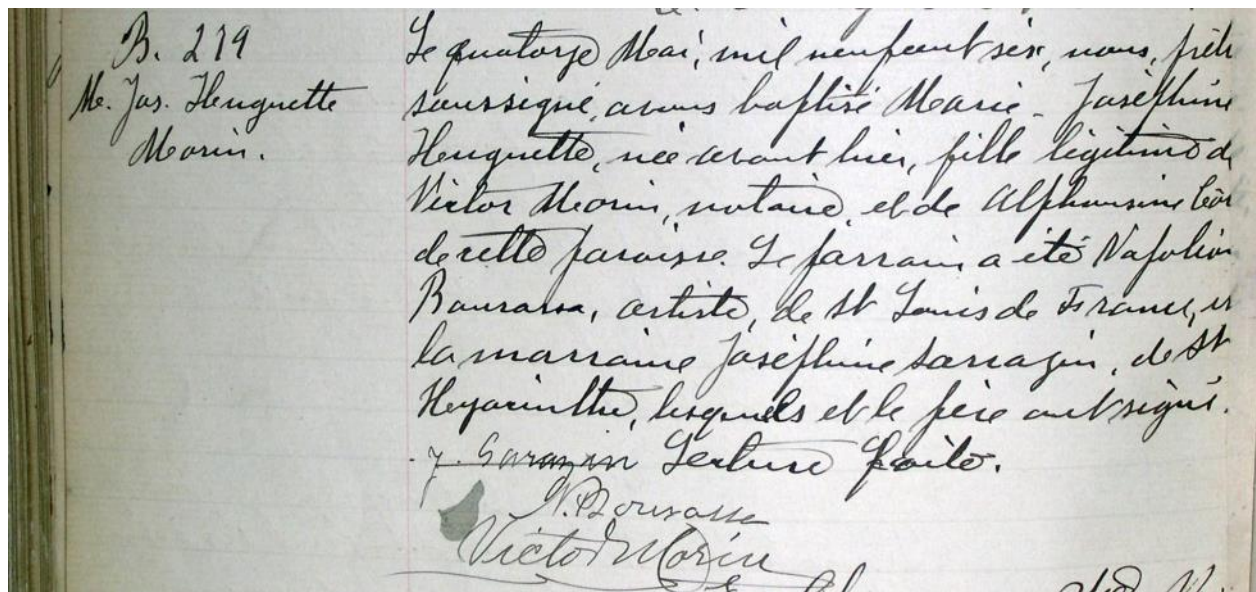 B. 279
M. Jos. Huguette
Morin.
Le quatorze Mai, mil neufcent six, nous, prêtr
soussigné, avons baptisé Marie - Joséphine
Huguette, née avant hier, fille légitime d
Victor Morin, notaire, et de Alphonsine Côt
de cette paroisse. Le parrain a été Napoléon
Bourassa, artiste, de St Louis de France, et
la marraine Joséphine Sarrazin, de St
Hyacinthe, lesquels et le père ont signé.
J. Sarazin Lecture faite.
N. Bourassa
Victor Morin